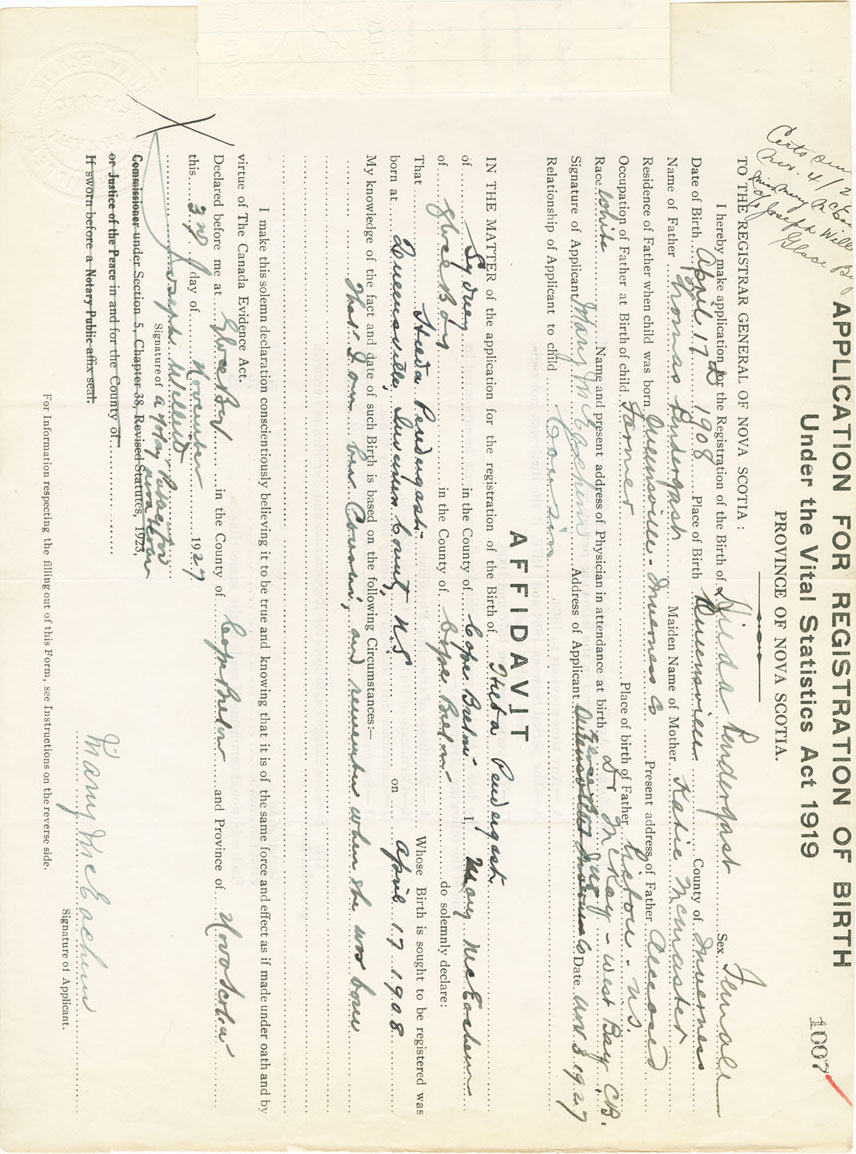 APPLICATION FOR REGISTRATION OF BIRTH
1007
Under the Vital Statistics Act 1919
PROVINCE OF NOVA SCOTIA.
Nov. 4/2
Miss Mary McEa
c/o Joseph Will
Glace Bay
TO THE REGISTRAR GENERAL OF NOVA SCOTIA:
I hereby make application for the Registration of the Birth of Hilda Pendergast Sex Female
Date of Birth April 17th 1908 Place of Birth Queensville County of Inverness
Name of Father Thomas Pendergast Maiden Name of Mother Katie McMaster
Residence of Father when child was born Queensville - Inverness Co Present address of Father deceased
Occupation of Father at Birth of child Farmer Place of birth of Father N.S.
Race white Name and present address of Physician in attendance at birth Dr McKay - West Bay, C.B.
Signature of Applicant Mary McEachern Address of Applicant Date Nov 3 1927
Relationship of Applicant to child Cousin
AFFIDAVIT
IN THE MATTER of the application for the registration of the Birth of Pendergast
of Sydney in the County of Cape Breton I, Mary McEachern
of Glace Bay in the County of Cape Breton do solemnly declare:
That Pendergast Whose Birth is sought to be registered was
born at Queensville, Inverness County, N.S on April 17 1908
My knowledge of the fact and date of such Birth is based on the following Circumstances:—
That I am her Cousin, and remember when she was born
I make this solemn declaration conscientiously believing it to be true and knowing that it is of the same force and effect as if made under oath and by
virtue of The Canada Evidence Act.
Declared before me at Glace Bay in the County of Cape Breton and Province of Nova Scotia
this 3rd day of November 1927
Joseph Willett
Signature of a Notary Public
Mary McEachern
Signature of Applicant.
Commissioner under Section 5, Chapter 38, Revised Statutes, 1923,
or Justice of the Peace in and for the County of
If sworn before a Notary Public affix seal.
For Information respecting the filling out of this Form, see Instructions on the reverse side.